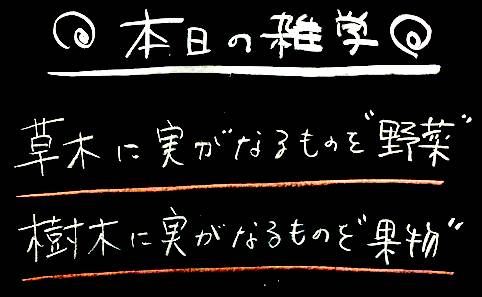 本日の雑学
草木に実がなるものを"野菜"
樹木に実がなるものを"果物"